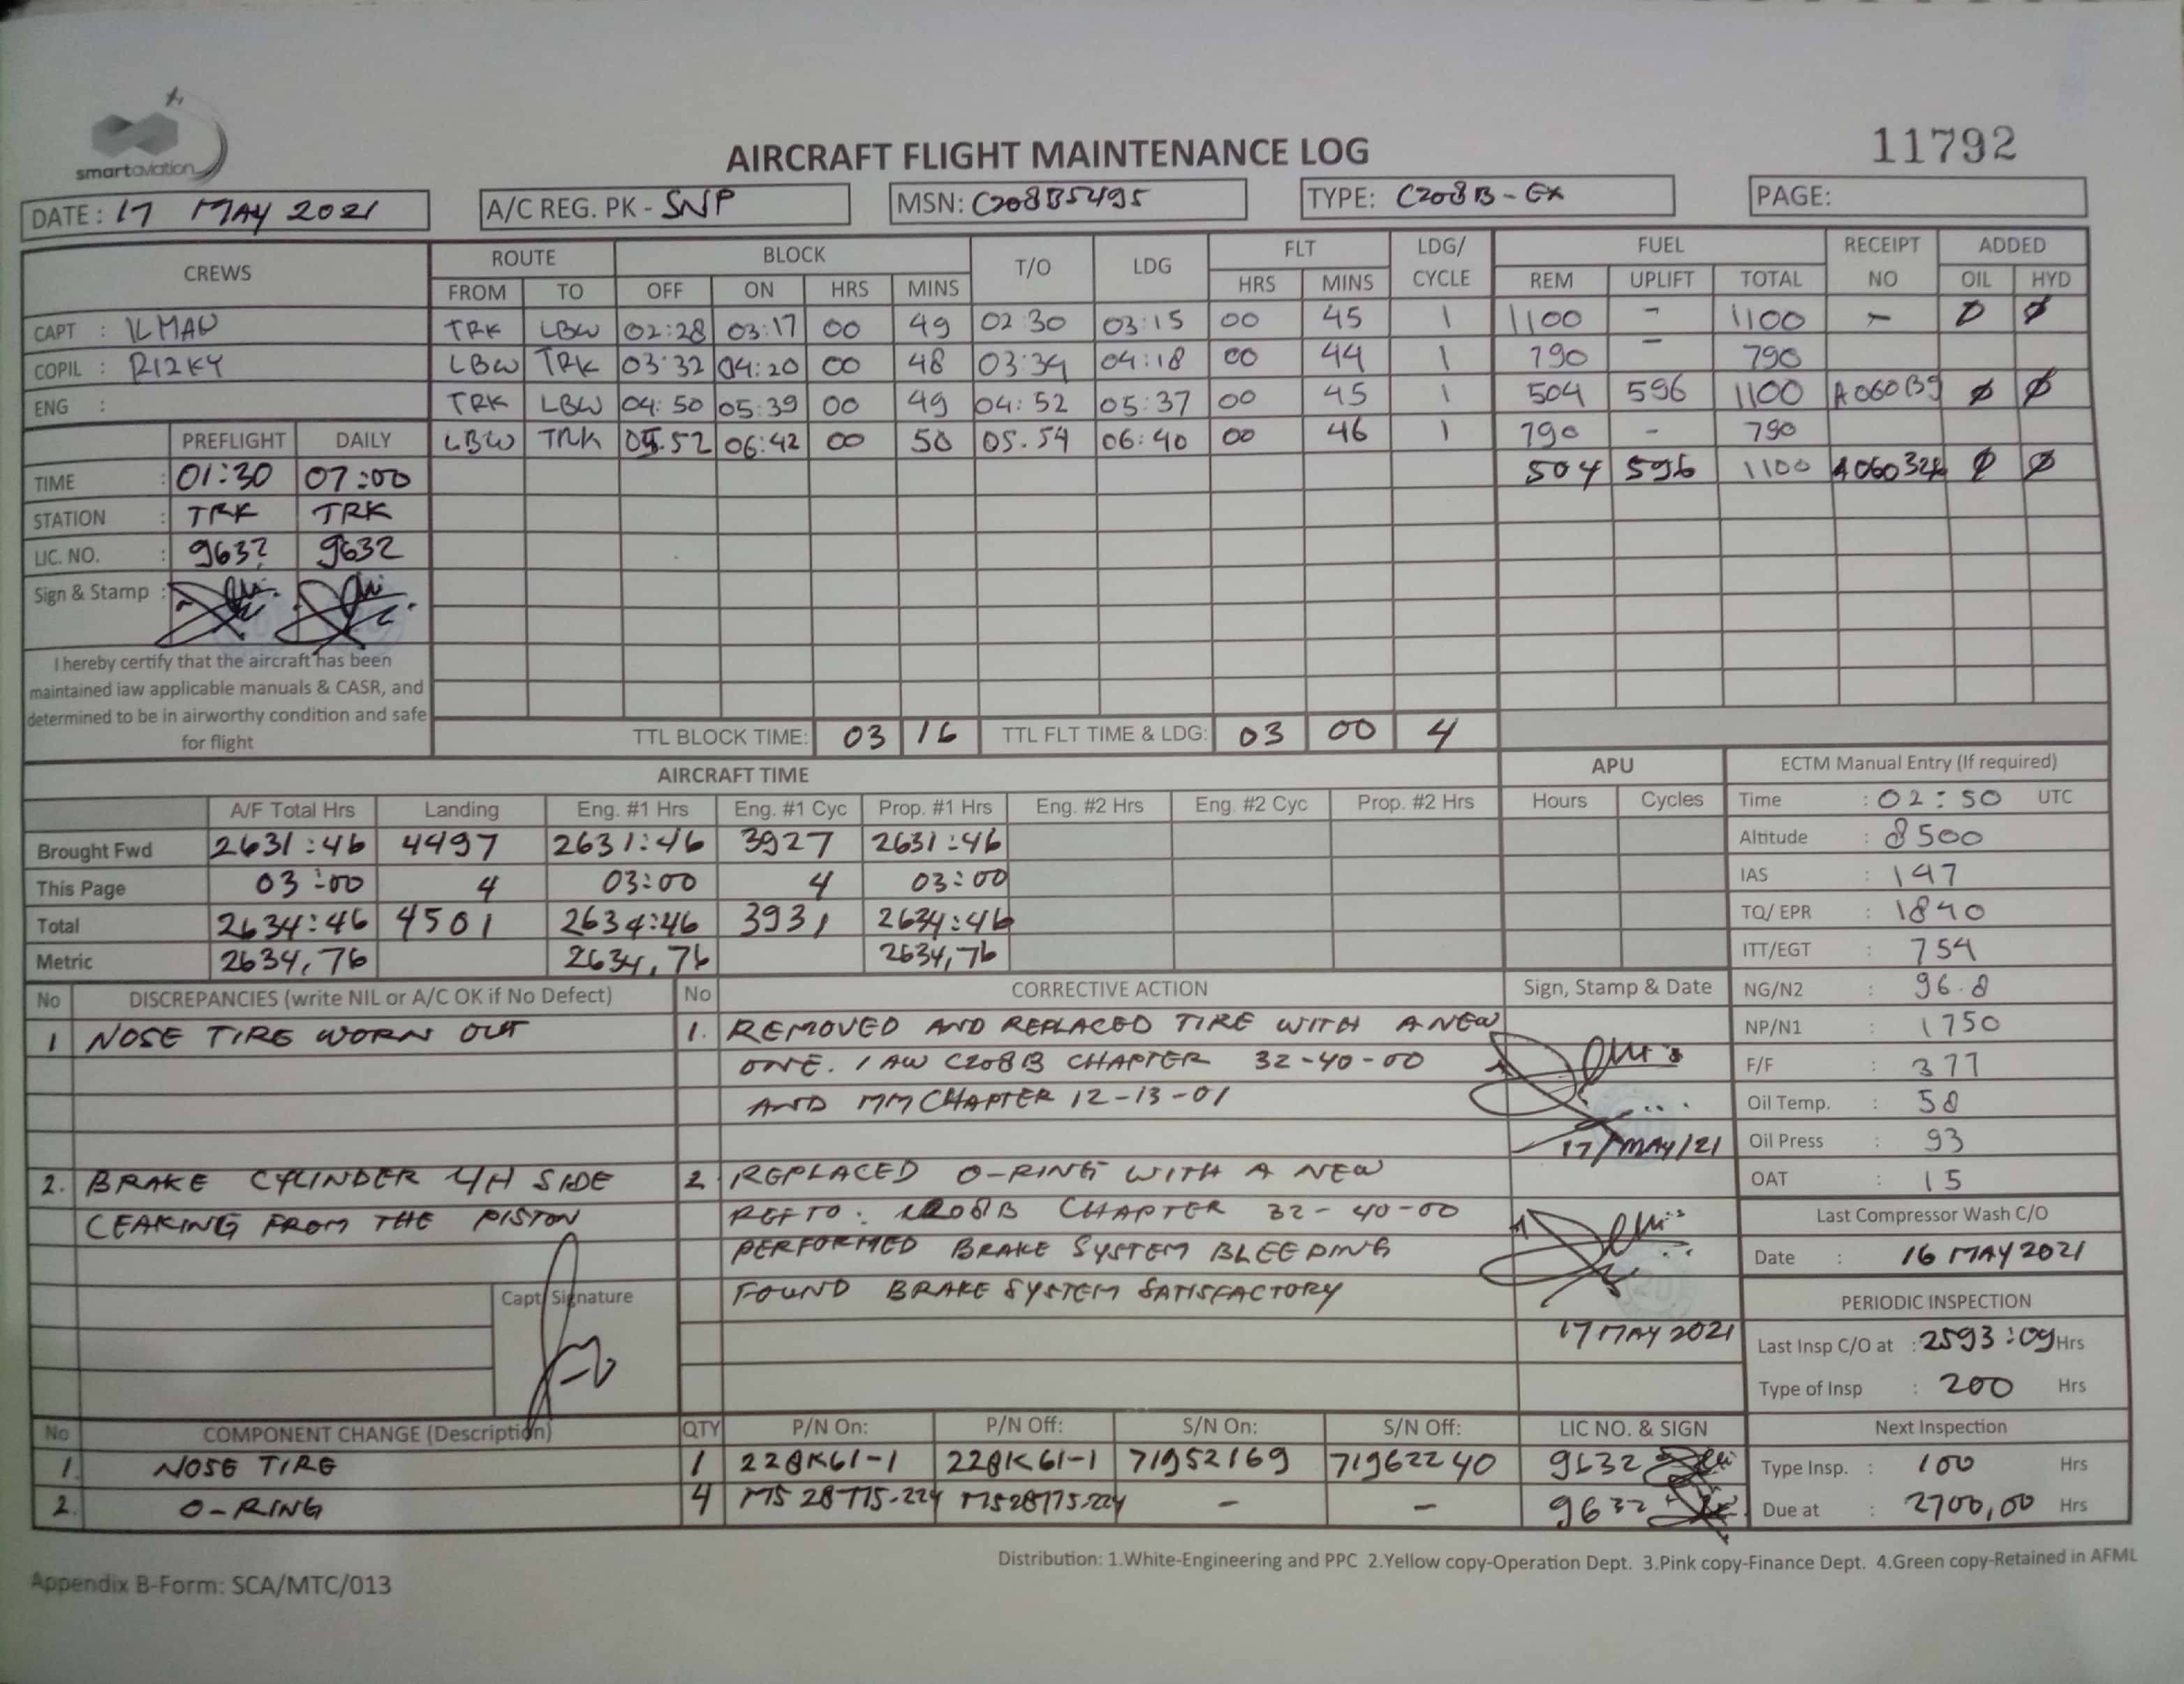 smartaviation
AIRCRAFT FLIGHT MAINTENANCE LOG
11792
DATE : 17 MAY 2021
A/C REG. PK - SNP
MSN: C208B5495
TYPE: C208B - EX
PAGE:
CREWS ROUTE BLOCK T/O LDG FLT LDG/ CYCLE FUEL RECEIPT NO ADDED
FROM TO OFF ON HRS MINS HRS MINS REM UPLIFT TOTAL OIL HYD
CAPT : TRK LBW 02:28 03:17 00 49 02:30 03:15 00 45 1 1100 - 1100 - Ø Ø
COPIL : RIZKY LBW TRK 03:32 04:20 00 48 03:34 04:18 00 44 1 790 - 790
ENG : TRK LBW 04:50 05:39 00 49 04:52 05:37 00 45 1 504 596 1100 Ø Ø
PREFLIGHT DAILY LBW TRK 05.52 06:42 00 50 05.54 06:40 00 46 1 790 - 790
TIME : 01:30 07:00 504 596 1100 Ø Ø
STATION : TRK TRK
LIC. NO. : 9632 9632
Sign & Stamp :
I hereby certify that the aircraft has been
maintained iaw applicable manuals & CASR, and
determined to be in airworthy condition and safe
for flight
TTL BLOCK TIME: 03 16 TTL FLT TIME & LDG: 03 00 4
AIRCRAFT TIME APU ECTM Manual Entry (If required)
A/F Total Hrs Landing Eng. #1 Hrs Eng. #1 Cyc Prop. #1 Hrs Eng. #2 Hrs Eng. #2 Cyc Prop. #2 Hrs Hours Cycles
Brought Fwd 2631:46 4497 2631:46 3927 2631:46
This Page 03:00 4 03:00 4 03:00
Total 2634:46 4501 2634:46 3931 2634:46
Metric 2634,76 2634,76 2634,76
Time : 02:50 UTC
Altitude : 8500
IAS : 147
TQ/ EPR : 1840
ITT/EGT : 754
NG/N2 : 96.8
NP/N1 : 1750
F/F : 377
Oil Temp. : 58
Oil Press : 93
OAT : 15
No DISCREPANCIES (write NIL or A/C OK if No Defect)
1 NOSE TIRE WORN OUT
2. BRAKE CYLINDER L/H SIDE
LEAKING FROM THE PISTON
Capt. Signature
No CORRECTIVE ACTION Sign, Stamp & Date
1. REMOVED AND REPLACED TIRE WITH A NEW
ONE. IAW C208B CHAPTER 32-40-00
AND MM CHAPTER 12-13-01
17/MAY/21
2 REPLACED O-RING WITH A NEW
REF TO : C208B CHAPTER 32-40-00
PERFORMED BRAKE SYSTEM BLEEDING
FOUND BRAKE SYSTEM SATISFACTORY
17 MAY 2021
Last Compressor Wash C/O
Date : 16 MAY 2021
PERIODIC INSPECTION
Last Insp C/O at : 2593:09 Hrs
Type of Insp : 200 Hrs
Next Inspection
Type Insp. : 100 Hrs
Due at : 2700,00 Hrs
No COMPONENT CHANGE (Description) QTY P/N On: P/N Off: S/N On: S/N Off: LIC NO. & SIGN
1. NOSE TIRE 1 228K61-1 228K61-1 71952169 71962240 9632
2. O-RING 4 MS28775-224 MS28775-224 - - 9632
Distribution: 1.White-Engineering and PPC 2.Yellow copy-Operation Dept. 3.Pink copy-Finance Dept. 4.Green copy-Retained in AFML
Appendix B-Form: SCA/MTC/013